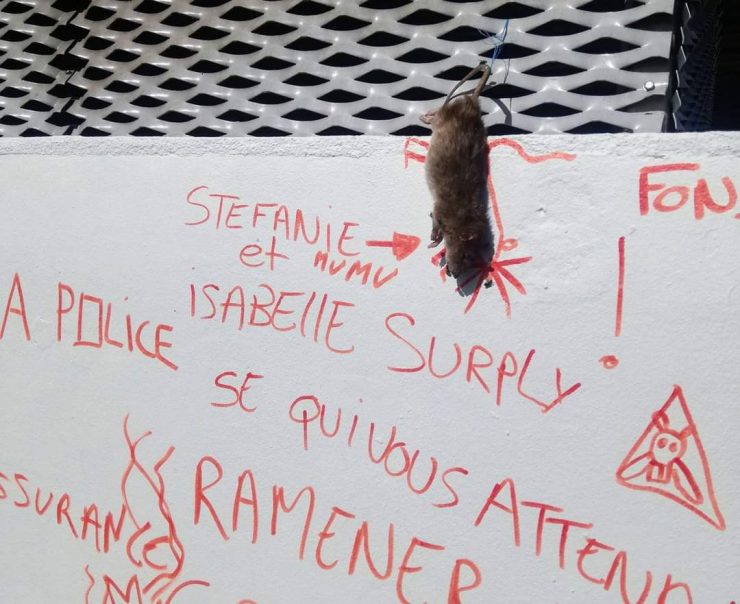 FON
STEFANIE
et MUMU
A POLICE
ISABEllE SURPLY !
SE QUI VOUS ATTEND
SSURANCE
RAMENER